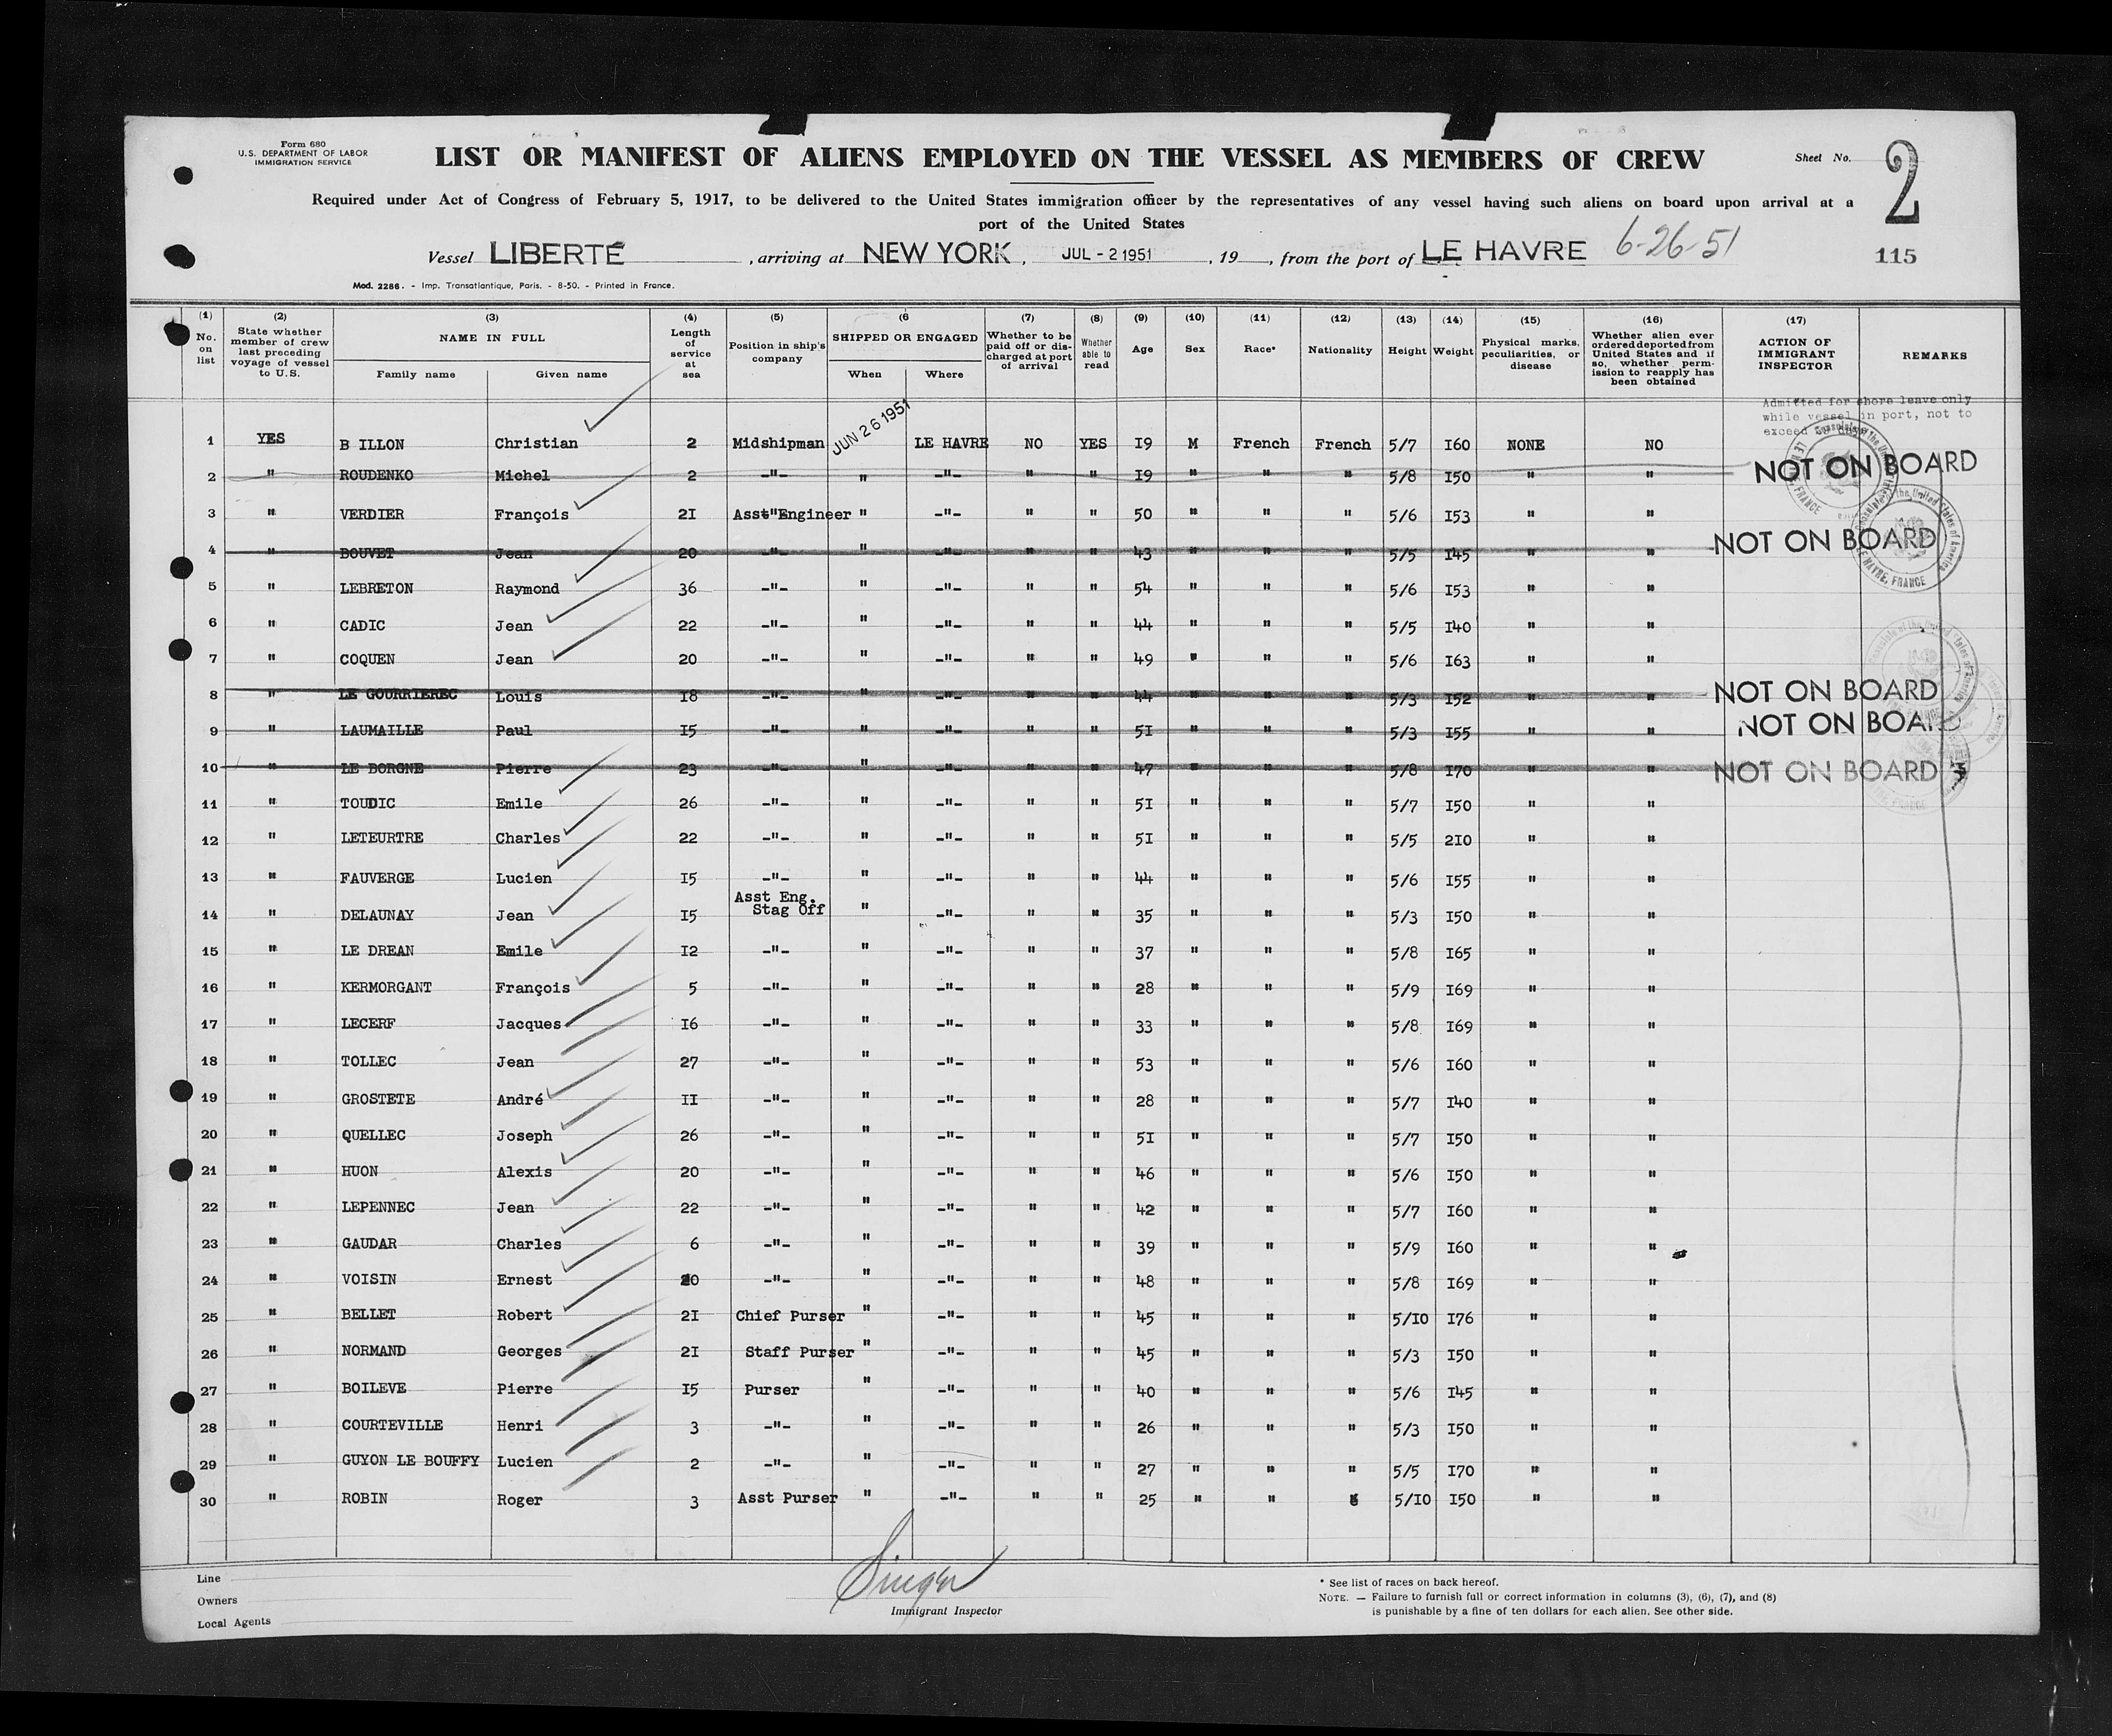 Form 680
U.S. DEPARTMENT OF LABOR
IMMIGRATION SERVICE
LIST OR MANIFEST OF ALIENS EMPLOYED ON THE VESSEL AS MEMBERS OF CREW
Sheet No. 2
Required under Act of Congress of February 5, 1917, to be delivered to the United States immigration officer by the representatives of any vessel having such aliens on board upon arrival at a
port of the United States
Vessel LIBERTÉ , arriving at NEW YORK , JUL - 2 1951 , 19 , from the port of LE HAVRE 6-26-51
115
Mod. 2286. - Imp. Transatlantique, Paris. - 8-50. - Printed in France.
(1) No. on list
(2) State whether member of crew last preceding voyage of vessel to U.S.
(3) NAME IN FULL Family name Given name
(4) Length of service at sea
(5) Position in ship's company
(6 SHIPPED OR ENGAGED When Where
(7) Whether to be paid off or discharged at port of arrival
(8) Whether able to read
(9) Age
(10) Sex
(11) Race*
(12) Nationality
(13) Height
(14) Weight
(15) Physical marks, peculiarities, or disease
(16) Whether alien ever ordered deported from United States and if so, whether permission to reapply has been obtained
(17) ACTION OF IMMIGRANT INSPECTOR
REMARKS
Admitted for shore leave only
while vessel in port, not to
exceed
1 YES B ILLON Christian 2 Midshipman JUN 26 1951 LE HAVRE NO YES 19 M French French 5/7 160 NONE NO
2 " ROUDENKO Michel 2 -"- " -"- " " 19 " " " 5/8 150 " " NOT ON BOARD
3 " VERDIER François 21 Asst Engineer " -"- " " 50 " " " 5/6 153 " "
4 " BOUVET Jean 20 -"- " -"- " " 43 " " " 5/5 145 " " NOT ON BOARD
5 " LEBRETON Raymond 36 -"- " -"- " " 54 " " " 5/6 153 " "
6 " CADIC Jean 22 -"- " -"- " " 44 " " " 5/5 140 " "
7 " COQUEN Jean 20 -"- " -"- " " 49 " " " 5/6 163 " "
8 " LE GOURRIEREC Louis 18 -"- " -"- " " 44 " " " 5/3 152 " " NOT ON BOARD
9 " LAUMAILLE Paul 15 -"- " -"- " " 51 " " " 5/3 155 " " NOT ON BOARD
10 " LE BORGNE Pierre 23 -"- " -"- " " 47 " " " 5/8 170 " " NOT ON BOARD
11 " TOUDIC Emile 26 -"- " -"- " " 51 " " " 5/7 150 " "
12 " LETEURTRE Charles 22 -"- " -"- " " 51 " " " 5/5 210 " "
13 " FAUVERGE Lucien 15 -"- " -"- " " 44 " " " 5/6 155 " "
14 " DELAUNAY Jean 15 Asst Eng. Stag Off " -"- " " 35 " " " 5/3 150 " "
15 " LE DREAN Emile 12 -"- " -"- " " 37 " " " 5/8 165 " "
16 " KERMORGANT François 5 -"- " -"- " " 28 " " " 5/9 169 " "
17 " LECERF Jacques 16 -"- " -"- " " 33 " " " 5/8 169 " "
18 " TOLLEC Jean 27 -"- " -"- " " 53 " " " 5/6 160 " "
19 " GROSTETE André 11 -"- " -"- " " 28 " " " 5/7 140 " "
20 " QUELLEC Joseph 26 -"- " -"- " " 51 " " " 5/7 150 " "
21 " HUON Alexis 20 -"- " -"- " " 46 " " " 5/6 150 " "
22 " LEPENNEC Jean 22 -"- " -"- " " 42 " " " 5/7 160 " "
23 " GAUDAR Charles 6 -"- " -"- " " 39 " " " 5/9 160 " "
24 " VOISIN Ernest 20 -"- " -"- " " 48 " " " 5/8 169 " "
25 " BELLET Robert 21 Chief Purser " -"- " " 45 " " " 5/10 176 " "
26 " NORMAND Georges 21 Staff Purser " -"- " " 45 " " " 5/3 150 " "
27 " BOILEVE Pierre 15 Purser " -"- " " 40 " " " 5/6 145 " "
28 " COURTEVILLE Henri 3 -"- " -"- " " 26 " " " 5/3 150 " "
29 " GUYON LE BOUFFY Lucien 2 -"- " -"- " " 27 " " " 5/5 170 " "
30 " ROBIN Roger 3 Asst Purser " -"- " " 25 " " " 5/10 150 " "
Line
Owners
Local Agents
Singer
Immigrant Inspector
* See list of races on back hereof.
NOTE. — Failure to furnish full or correct information in columns (3), (6), (7), and (8)
is punishable by a fine of ten dollars for each alien. See other side.